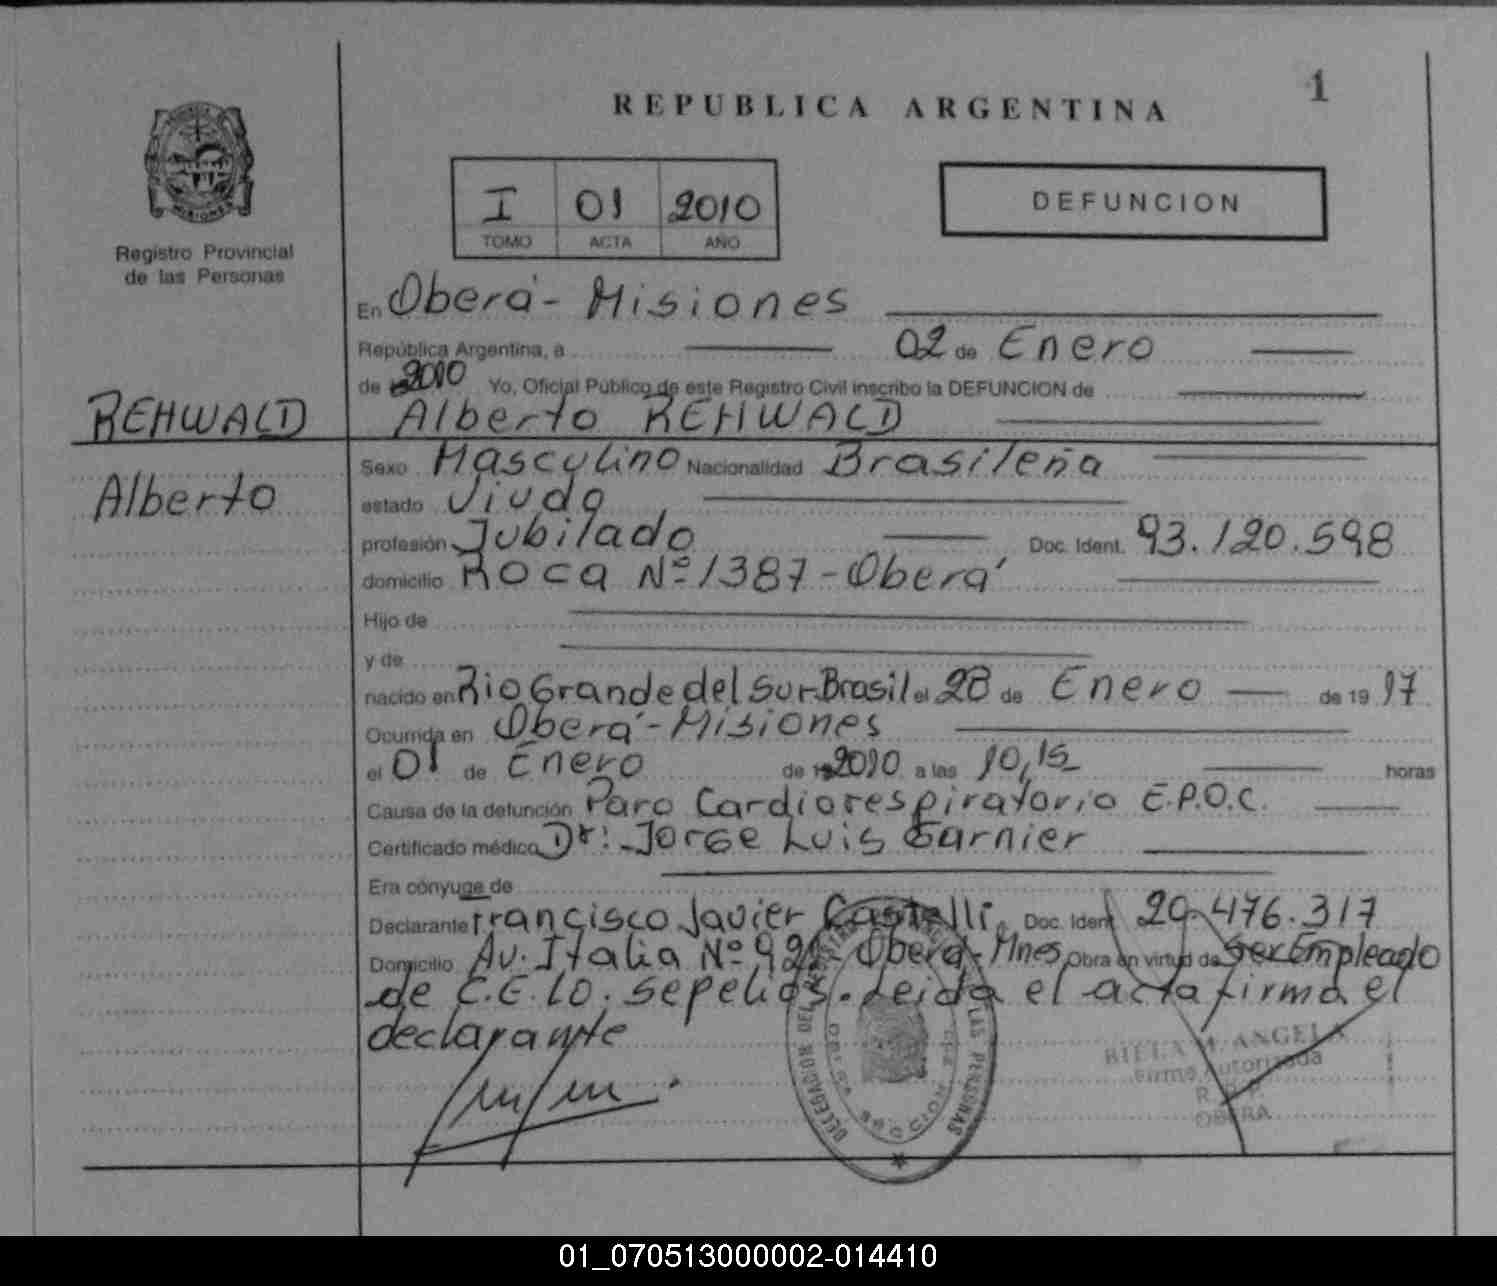 1
REPUBLICA ARGENTINA
I 01 2010
TOMO ACTA AÑO
DEFUNCION
MISIONES
Registro Provincial
de las Personas
En Oberá - Misiones
República Argentina, a 02 de Enero
de 2010 Yo, Oficial Público de este Registro Civil inscribo la DEFUNCION de
REHWALD Alberto REHWALD
Alberto
Sexo Masculino Nacionalidad Brasileña
estado Viudo
profesión Jubilado Doc. Ident. 93.120.598
domicilio Roca Nº 1387 - Oberá
Hijo de
y de
nacido en Rio Grande del Sur-Brasil el 28 de Enero de 19 17
Ocurrida en Oberá - Misiones
el 01 de Enero de 2010 a las 10,15 horas
Causa de la defunción Paro Cardiorespiratorio E.P.O.C.
Certificado médico Dr: Jorge Luis Garnier
Era cónyuge de
Declarante Francisco Javier Castelli. Doc. Ident. 29.476.317
Domicilio Av. Italia Nº Oberá - Mnes Obra en virtud de Ser Empleado
de C.E.LO. Sepelios. Leida el acta firma el
declarante
DELEGACION DEL LAS PERSONAS
M. ANGELA
Firma Autorizada
OBERA
01_070513000002-014410